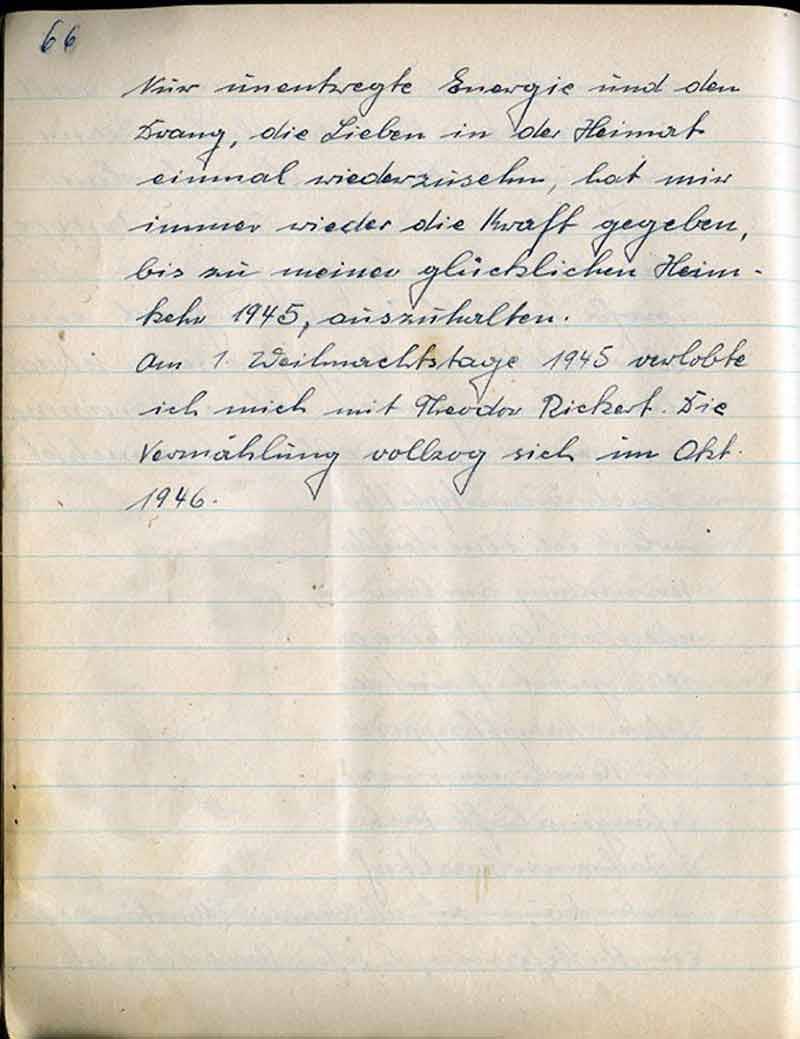 66
Nur unentwegte Energie und den
Drang, die Lieben in der Heimat
einmal wiederzusehn, hat mir
immer wieder die Kraft gegeben,
bis zu meiner glücklichen Heim-
kehr 1945, auszuhalten.
Am 1. Weihnachtstage 1945 verlobte
ich mich mit Theodor Rickert. Die
Vermählung vollzog sich im Okt.
1946.